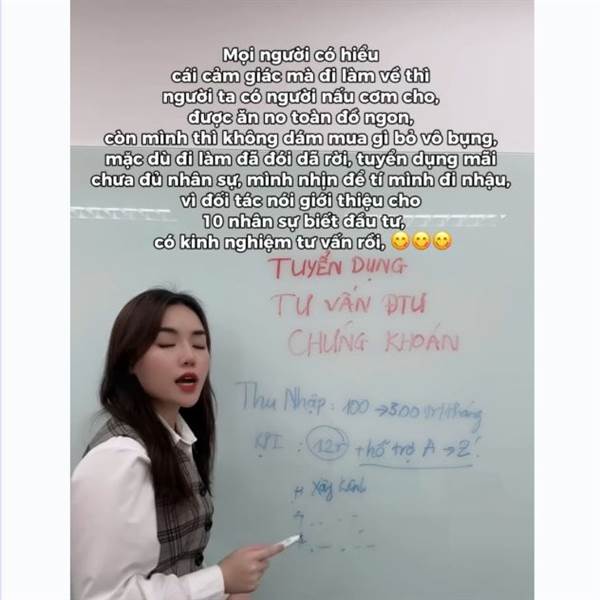 Mọi người có hiểu
cái cảm giác mà đi làm về thì
người ta có người nấu cơm cho,
được ăn no toàn đồ ngon,
còn mình thì không dám mua gì bỏ vô bụng,
mặc dù đi làm đã đói dã rời, tuyển dụng mãi
chưa đủ nhân sự, mình nhịn để tí mình đi nhậu,
vì đối tác nói giới thiệu cho
10 nhân sự biết đầu tư,
có kinh nghiệm tư vấn rồi, 😋😋😋
TUYỂN DỤNG
TƯ VẤN ĐTƯ
CHỨNG KHOÁN
Thu Nhập: 100 → 300 tr/tháng
KPI : 12r + hỗ trợ A → Z!
Xây kênh